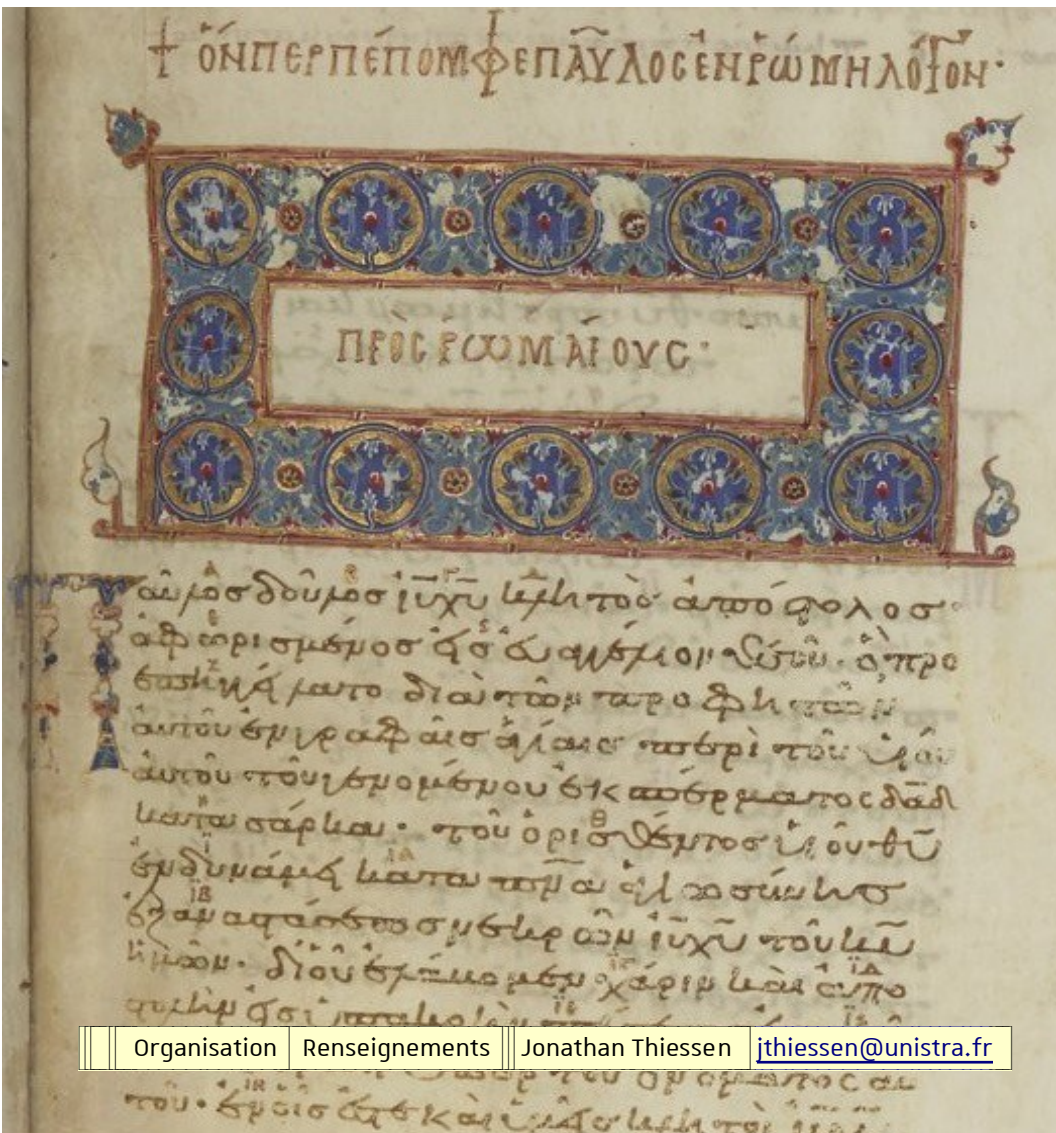 † ὍΝΠΕΡ ΠΈΠΟΜΦΕ ΠΑῦΛΟϹ ἘΝ ῬΏΜΗ ΛΌΓΟΝ·
ΠΡῸϹ ῬΩΜΑΊΟΥϹ·
Παῦλος δοῦλος ἰῡ χῡ κλητὸς ἀπόστολος·
ἀφωρισμένος εἰς εὐαγγέλιον θεοῦ· ὃ προ
επηγγείλατο διὰ τῶν προφητῶν
αὐτοῦ ἐν γραφαῖς ἁγίαις περὶ τοῦ υἱοῦ
αὐτοῦ τοῦ γενομένου ἐκ σπέρματος δᾱδ
κατὰ σάρκα· τοῦ ὁρισθέντος υἱοῦ θῡ
ἐν δυνάμει κατὰ πνᾱ ἁγιωσύνης
ἐξ ἀναστάσεως νεκρῶν ἰῡ χῡ τοῦ κῡ
ἡμῶν· δι οὗ ἐλάβομεν χάριν καὶ ἀπο
στολὴν εἰς ὑπακοὴν
Organisation Renseignements Jonathan Thiessen jthiessen@unistra.fr
τοῦ ὀνόματος αυ
τοῦ· ἐν οἷς ἐστε καὶ ὑμεῖς κλητοὶ